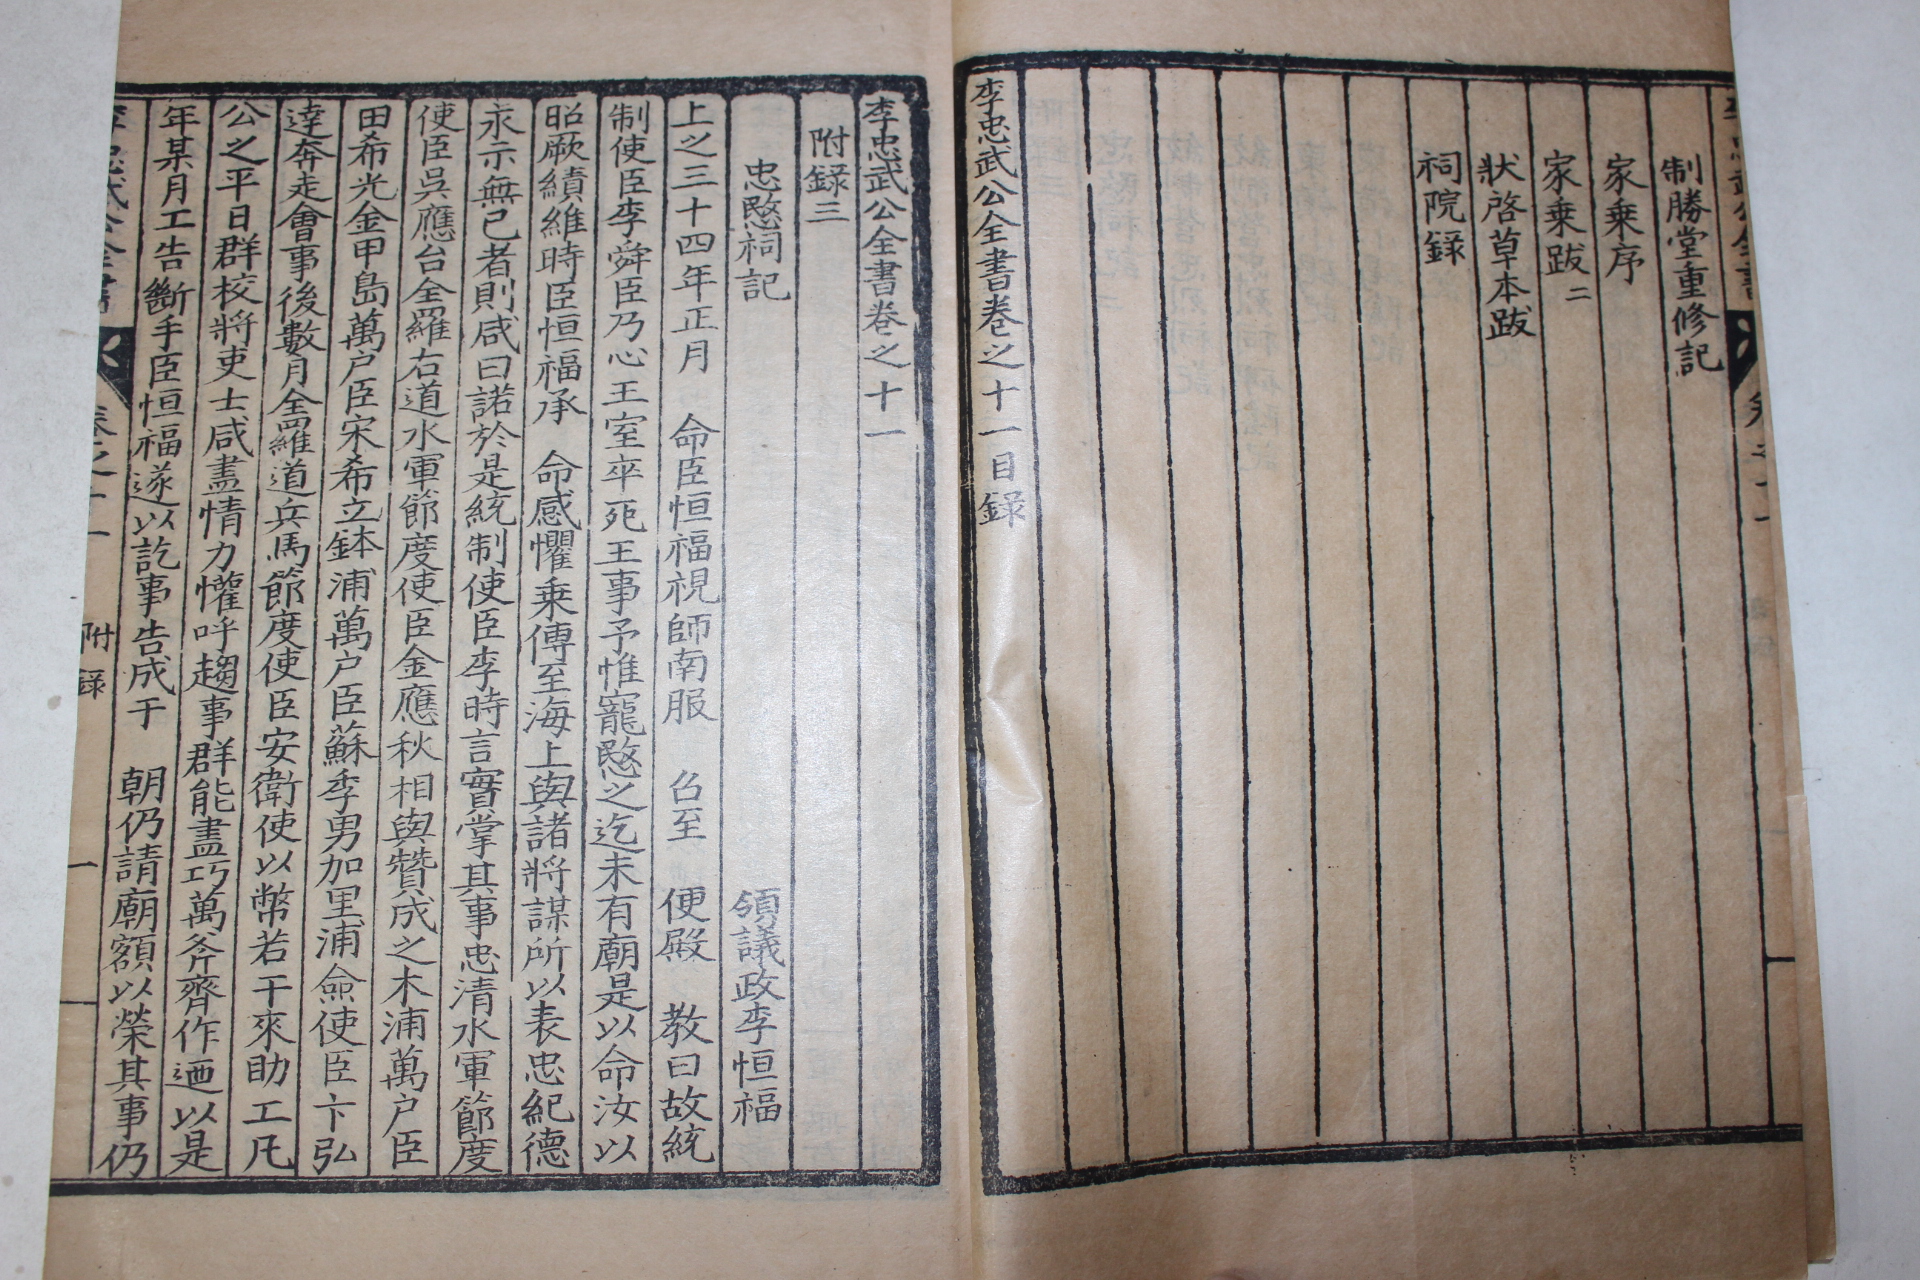 制勝堂重修記
家乗序
家乗跋二
狀啓草本跋
祠院錄
李忠武公全書卷之十一目錄
李忠武公全書卷之十一
附錄三
忠愍祠記
領議政李恒福
上之三十四年正月 命臣恒福視師南服 召至 便殿 教曰故統
制使臣李舜臣乃心王室卒死王事予惟寵愍之迄未有廟是以命汝以
昭厥績維時臣恒福承 命感懼乗傳至海上與諸將謀所以表忠紀德
永示無已者則咸曰諾於是統制使臣李時言實掌其事忠清水軍節度
使臣吳應台全羅右道水軍節度使臣金應秋相與贊成之木浦萬户臣
田希光金甲島萬户臣宋希立鉢浦萬户臣蘇季男加里浦僉使臣卞弘
達奔走會事後數月全羅道兵馬節度使臣安衛使以幣若干來助工凡
公之平日群校將吏士咸盡情力懽呼趨事群能盡巧萬斧齊作迺以是
年某月工告斷手臣恒福遂以訖事告成于 朝仍請廟額以榮其事仍
卷之十一 附錄 一